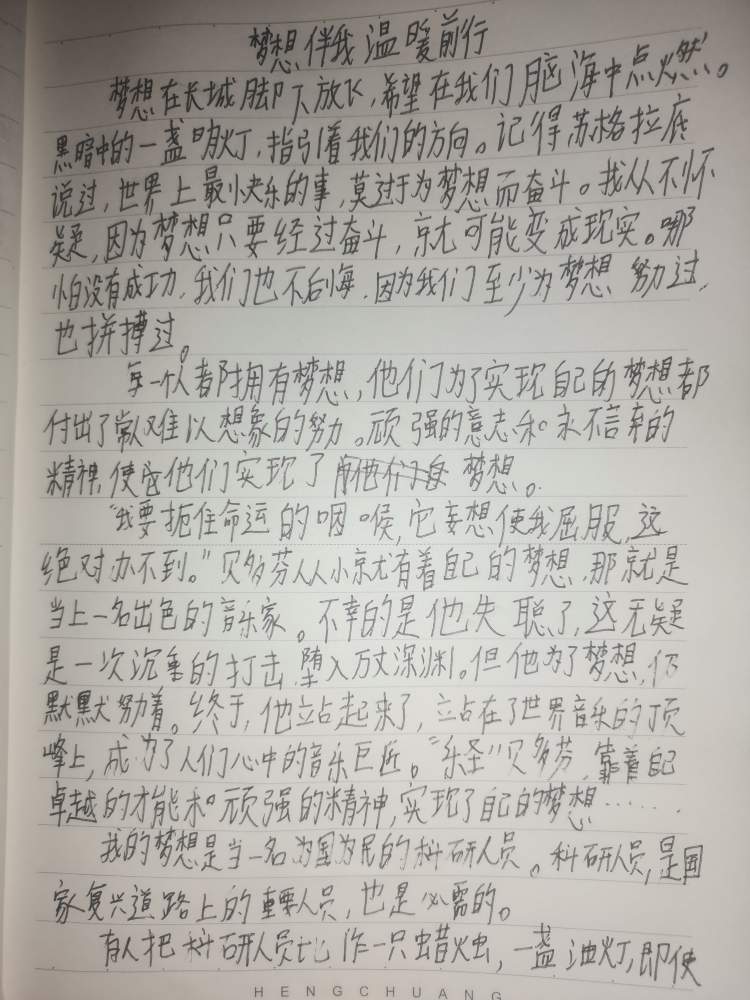 梦想伴我温暖前行
梦想在长城脚下放飞,希望在我们脑海中点燃。
黑暗中的一盏明灯,指引着我们的方向。记得苏格拉底
说过,世界上最快乐的事,莫过于为梦想而奋斗。我从不怀
疑,因为梦想只要经过奋斗,就可能变成现实。哪
怕没有成功,我们也不后悔,因为我们至少为梦想努力过,
也拼搏过。
每一个人都拥有梦想,他们为了实现自己的梦想都
付出了常人难以想象的努力。顽强的意志和永不言弃的
精神,使他们实现了梦想。
“我要扼住命运的咽喉,它妄想使我屈服,这
绝对办不到。”贝多芬从小就有着自己的梦想,那就是
当上一名出色的音乐家。不幸的是他失聪了,这无疑
是一次沉重的打击,堕入万丈深渊。但他为了梦想,仍
默默努力着。终于,他站起来了,站在了世界音乐的顶
峰上,成为了人们心中的音乐巨匠。“乐圣”贝多芬,靠着自己
卓越的才能和顽强的精神,实现了自己的梦想……
我的梦想是当一名为国为民的科研人员。科研人员,是国
家复兴道路上的重要人员,也是必需的。
有人把科研人员比作一只蜡烛,一盏油灯,即使
HENGCHUANG